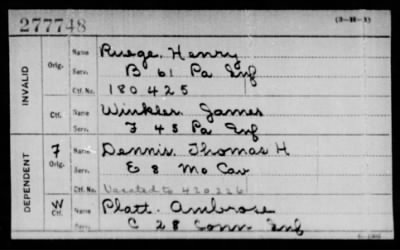 277748 (3-H-1)
INVALID
Orig. Name Ruege, Henry
Serv. B 61 Pa Inf
Ctf. No. 180425
Ctf. Name Winkler, James
Serv. F 45 Pa Inf
DEPENDENT
7 Orig. Name Dennis, Thomas H
Serv. E 8 Mo Cav
Ctf. No. Vacated to 420226
W Ctf. Name Platt, Ambrose
Serv. C 28 Conn. Inf